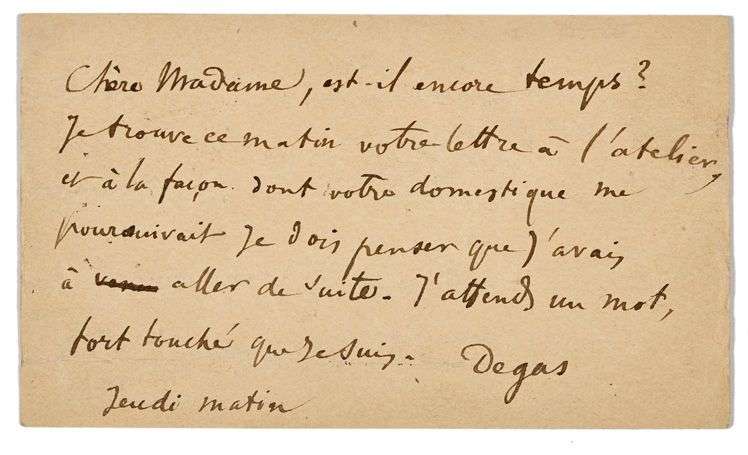 Chère Madame, est-il encore temps?
Je trouve ce matin votre lettre à l'atelier,
et à la façon dont votre domestique me
poursuivait je dois penser que j'avais
à venir aller de suite. J'attends un mot,
fort touché que je suis. Degas
Jeudi matin